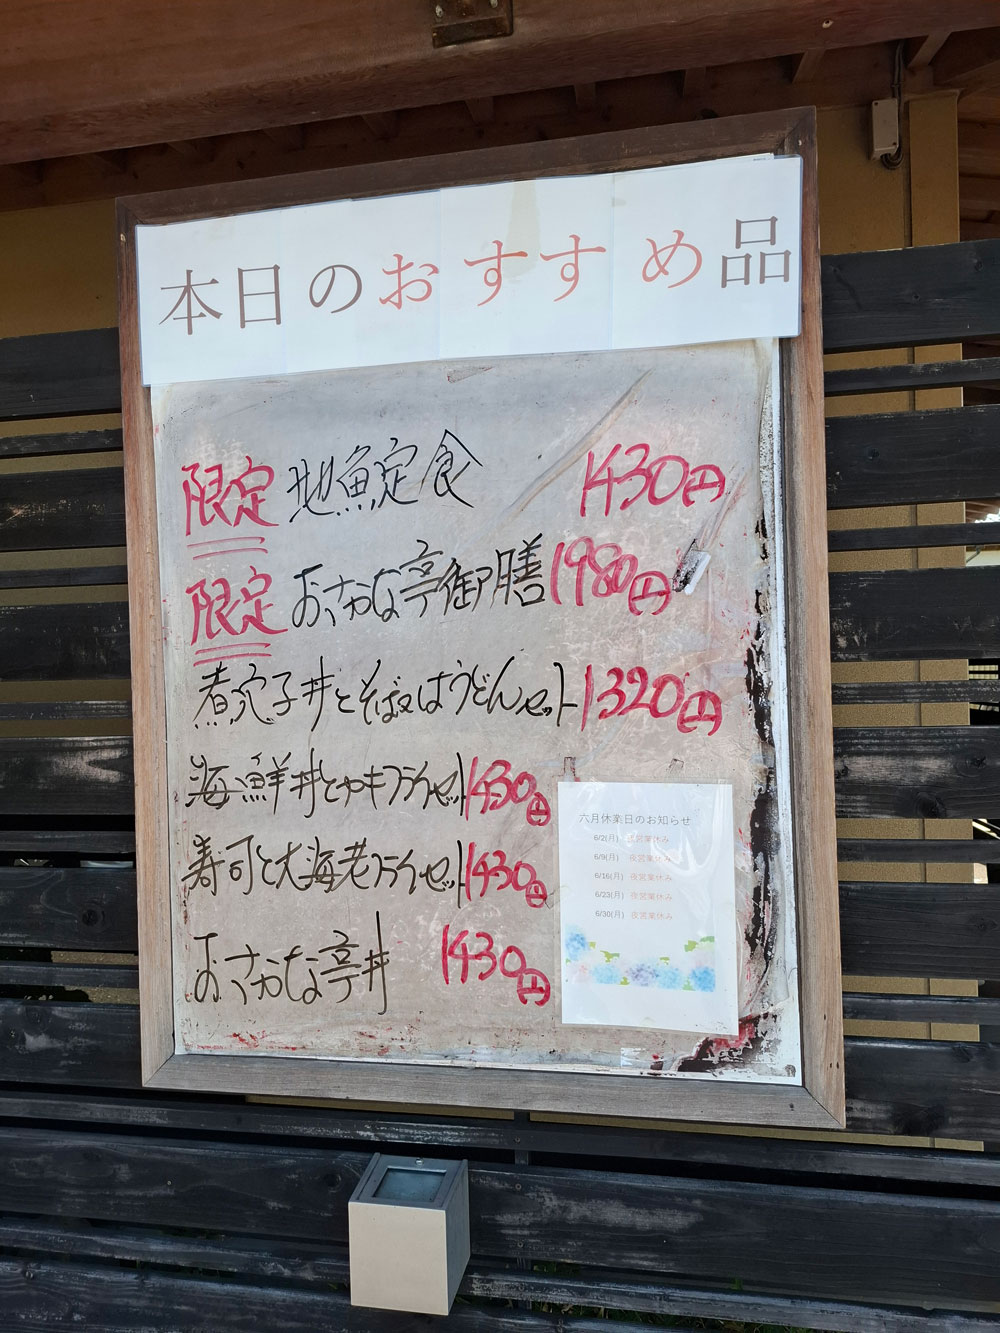 本日のおすすめ品
限定 地魚定食 1430円
限定 おさかな亭御膳 1980円
煮穴子丼とそば又はうどんセット 1320円
海鮮丼とカキフライセット 1430円
寿司と大海老フライセット 1430円
おさかな亭丼 1430円
六月休業日のお知らせ
6/2(月) 夜営業休み
6/9(月) 夜営業休み
6/16(月) 夜営業休み
6/23(月) 夜営業休み
6/30(月) 夜営業休み